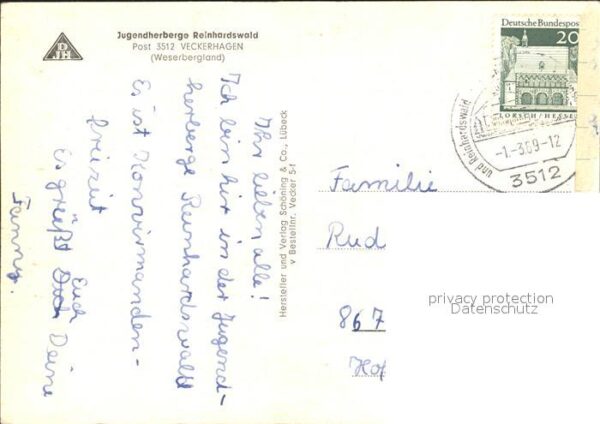 DJH
Jugendherberge Reinhardswald
Post 3512 VECKERHAGEN
(Weserbergland)
Ihr lieben alle!
Ich bin hir in der Jugend-
herberge Reinhardswald
Es ist Konvirmanden-
freizeit
Es grüßt Euch Deine
Fanny.
Hersteller und Verlag Schöning & Co., Lübeck
v Bestellnr. Vecker 5-t
Deutsche Bundespost
20
LORSCH/HESSEN
und Reinhardswald
-1.-3.69-12
3512
Familie
Rud
867
Hof
privacy protection
Datenschutz